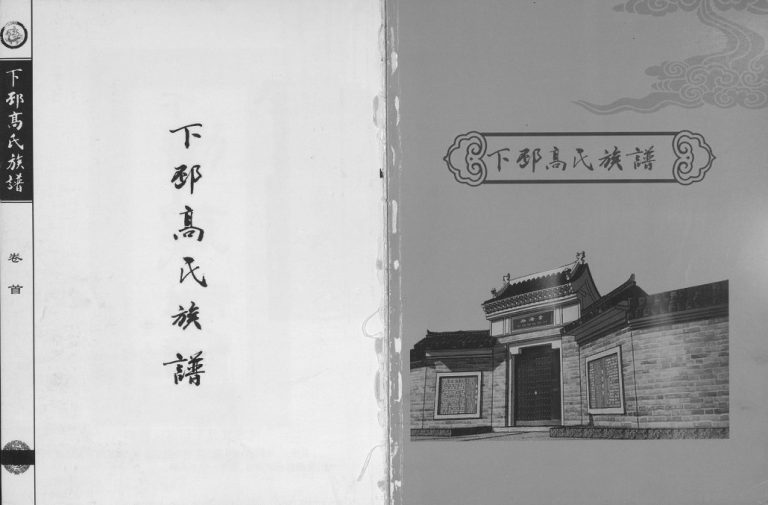 下邳高氏族譜
卷首
下邳高氏族譜
下邳高氏族譜